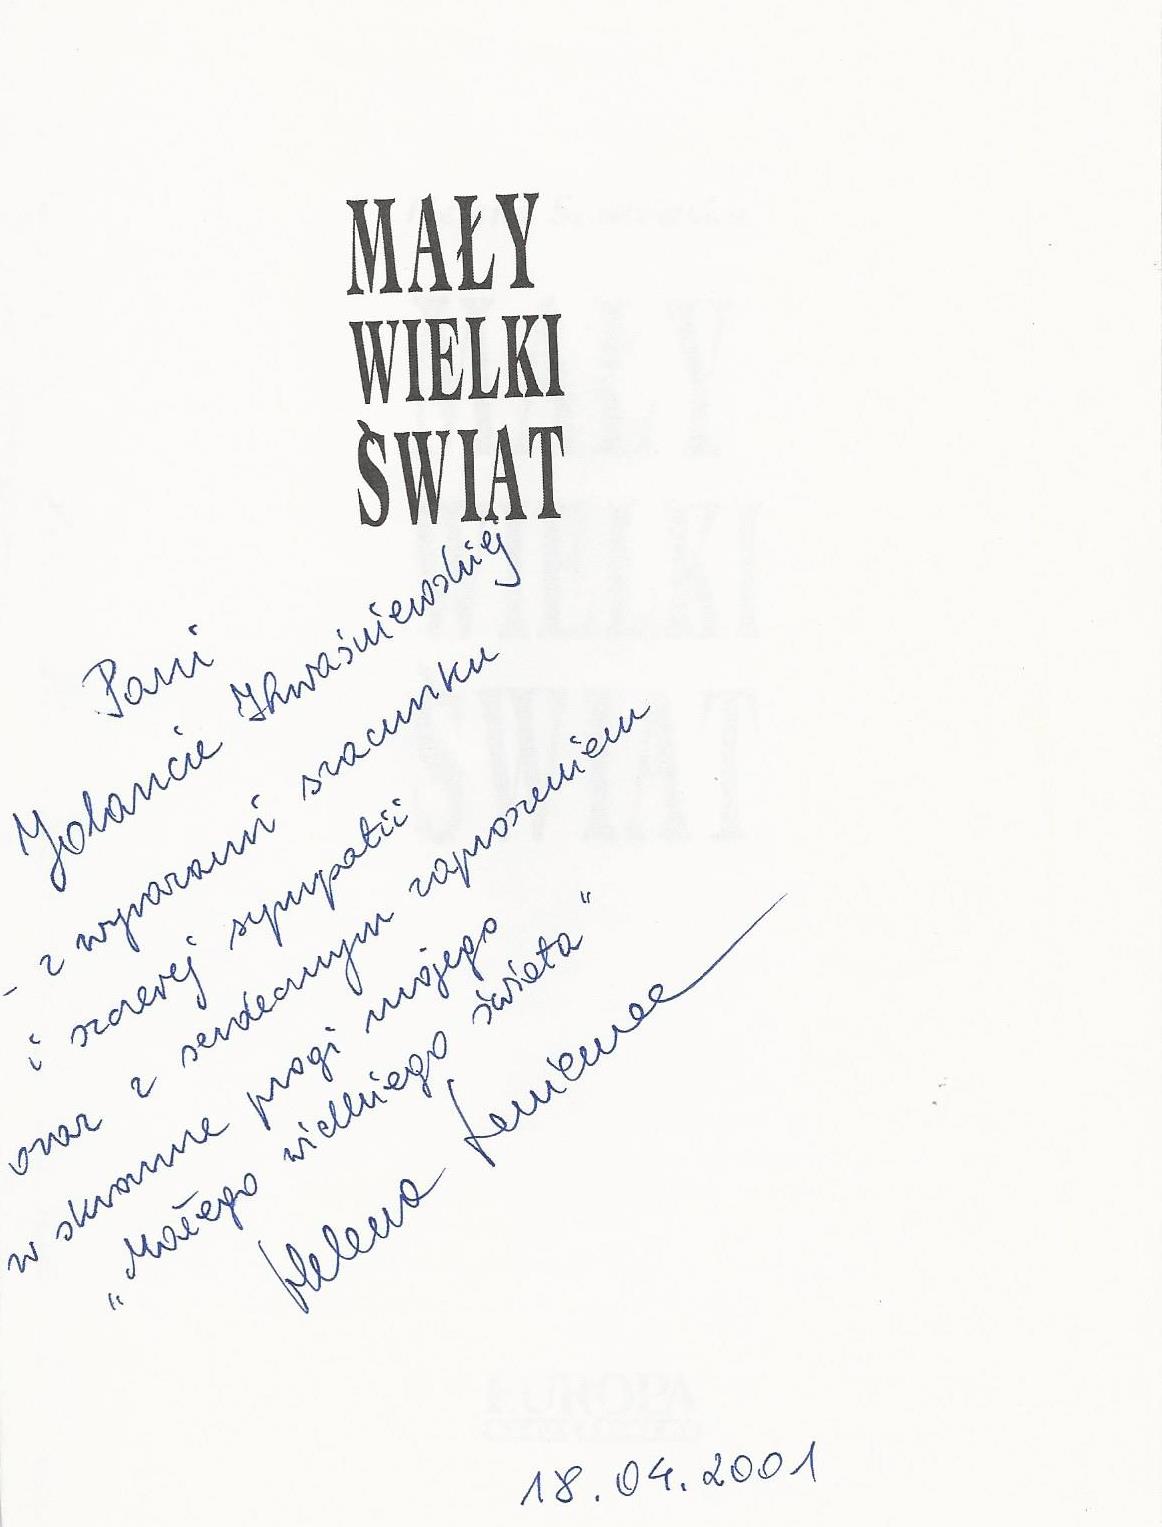 MAŁY
WIELKI
ŚWIAT
Pani
Jolancie Kwaśniewskiej
- z wyrazami szacunku
i szczerej sympatii
oraz z serdecznym zaproszeniem
w skromne progi mojego
"Małego wielkiego świata"
Helena
18.04.2001
EUROPA